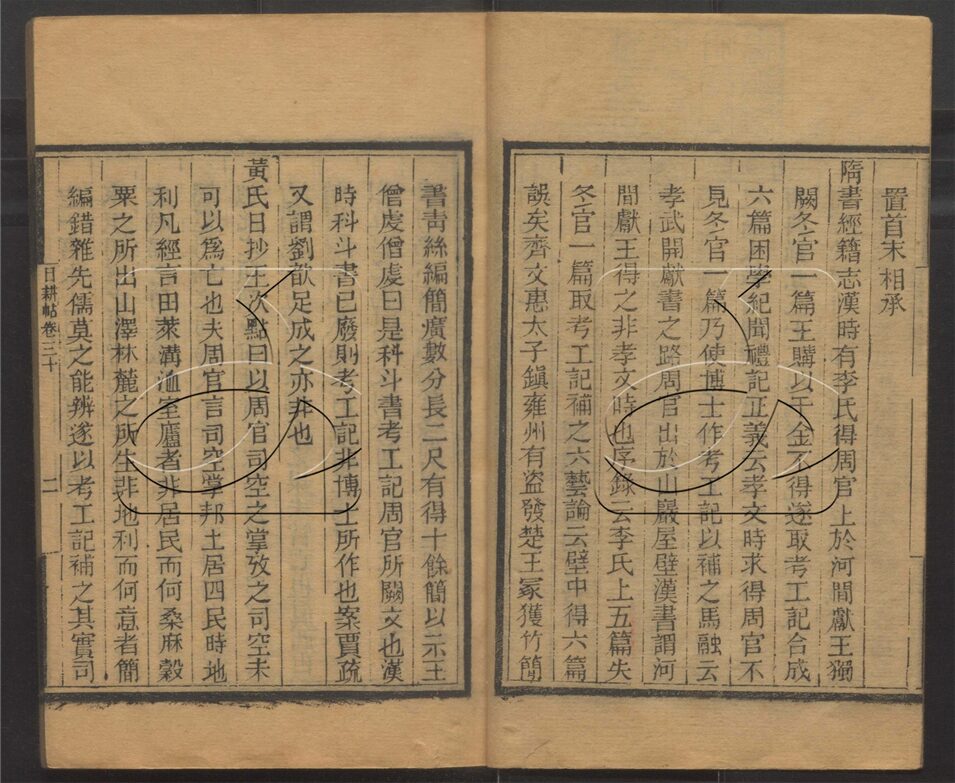 置首末相承
隋書經籍志漢時有李氏得周官上於河間獻王獨
闕冬官一篇王購以千金不得遂取考工記合成
六篇困學紀聞禮記正義云孝文時求得周官不
見冬官一篇乃使博士作考工記以補之馬融云
孝武開獻書之路周官出於山巖屋壁漢書謂河
間獻王得之非孝文時也序錄云李氏上五篇失
冬官一篇取考工記補之六藝論云壁中得六篇
誤矣齊文惠太子鎮雍州有盜發楚王冢獲竹簡
書青絲編簡廣數分長二尺有得十餘簡以示王
僧虔僧虔曰是科斗書考工記周官所闕文也漢
時科斗書已廢則考工記非博士所作也案賈疏
又謂劉歆足成之亦非也
黃氏日抄王次點曰以周官司空之掌攷之司空未
可以爲亡也夫周官言司空掌邦土居四民時地
利凡經言田萊溝洫室廬者非居民而何桑麻穀
粟之所出山澤林麓之所生非地利而何意者簡
編錯雜先儒莫之能辨遂以考工記補之其實司
日耕帖卷三十
二